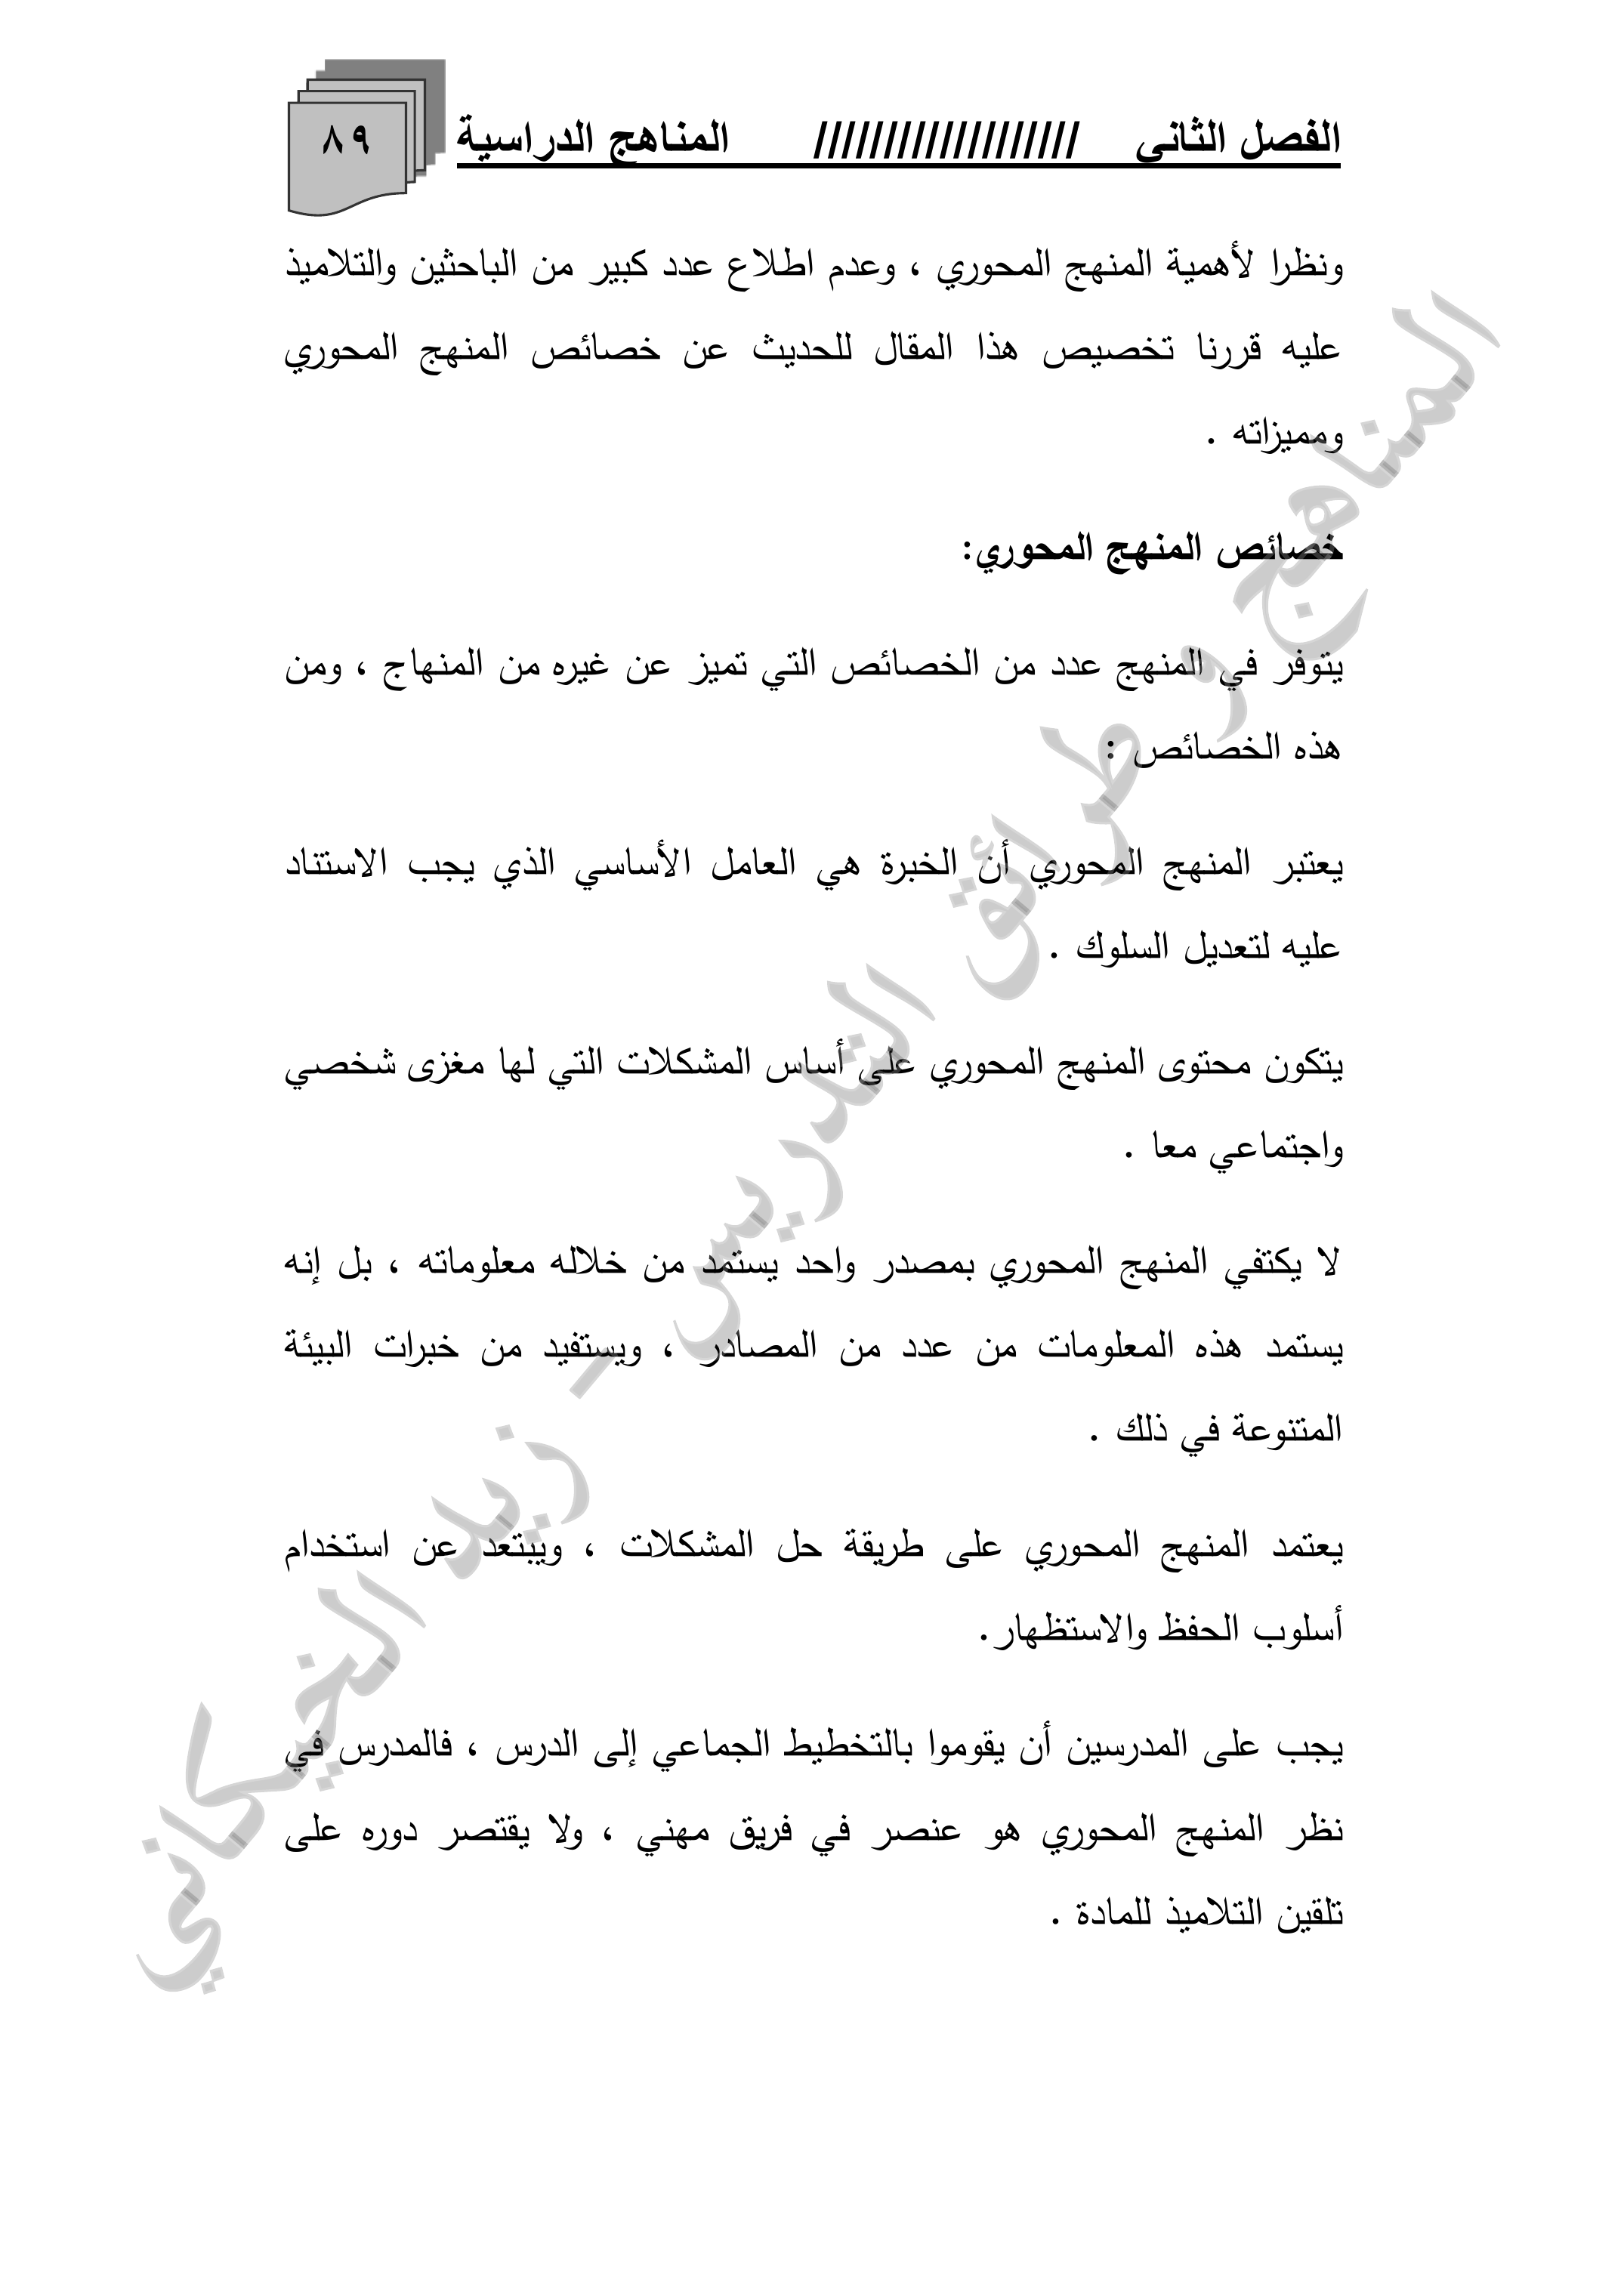 الفصل الثاني /////////////////// المناهج الدراسية
٨٩
ونظرا لأهمية المنهج المحوري ، وعدم اطلاع عدد كبير من الباحثين والتلاميذ
عليه قررنا تخصيص هذا المقال للحديث عن خصائص المنهج المحوري
ومميزاته .
خصائص المنهج المحوري:
يتوفر في المنهج عدد من الخصائص التي تميز عن غيره من المنهاج ، ومن
هذه الخصائص :
يعتبر المنهج المحوري أن الخبرة هي العامل الأساسي الذي يجب الاستناد
عليه لتعديل السلوك .
يتكون محتوى المنهج المحوري على أساس المشكلات التي لها مغزى شخصي
واجتماعي معا .
لا يكتفي المنهج المحوري بمصدر واحد يستمد من خلاله معلوماته ، بل إنه
يستمد هذه المعلومات من عدد من المصادر ، ويستفيد من خبرات البيئة
المتنوعة في ذلك .
يعتمد المنهج المحوري على طريقة حل المشكلات ، ويبتعد عن استخدام
أسلوب الحفظ والاستظهار.
يجب على المدرسين أن يقوموا بالتخطيط الجماعي إلى الدرس ، فالمدرس في
نظر المنهج المحوري هو عنصر في فريق مهني ، ولا يقتصر دوره على
تلقين التلاميذ للمادة .
المناهج و طرائق التدريس - زيد الخيكاني